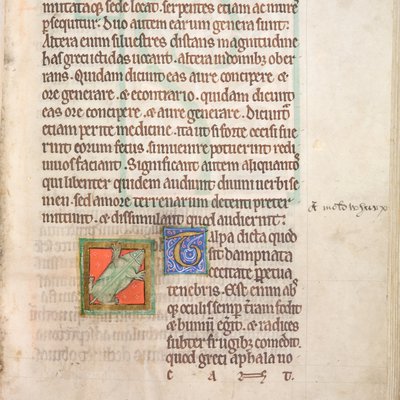 mutataq; sede locat. serpentes etiam ac mures
psequitur. Duo autem earum genera sunt.
Altera enim siluestres distans magnitudine
has greci uidas uocant. altera in domibus ober
rans. Quidam dicunt eas aure concipere. ⁊ ore
ore generare. ⁊ econtrario. quidam dicunt
eas ore concipere. ⁊ aure generare. Dicunt
etiam perite medicine. ita ut si forte occisi fue
rint eorum fetus. si inuenire potuerint redi
uiuos faciant. Significant autem aliquantos
qui libenter quidem audiunt diuini uerbi se
men. sed amore terrenarum detenti preter
mittunt. ⁊ dissimulant quod audierint.
Talpa dicta quod
sit dampnata
cecitate ppetua
tenebris. Est enim absq;
oculis semp terram fodit
⁊ humum egerit. ⁊ radices
subter frugibus comedit.
quod greci aphala uo
C A U.